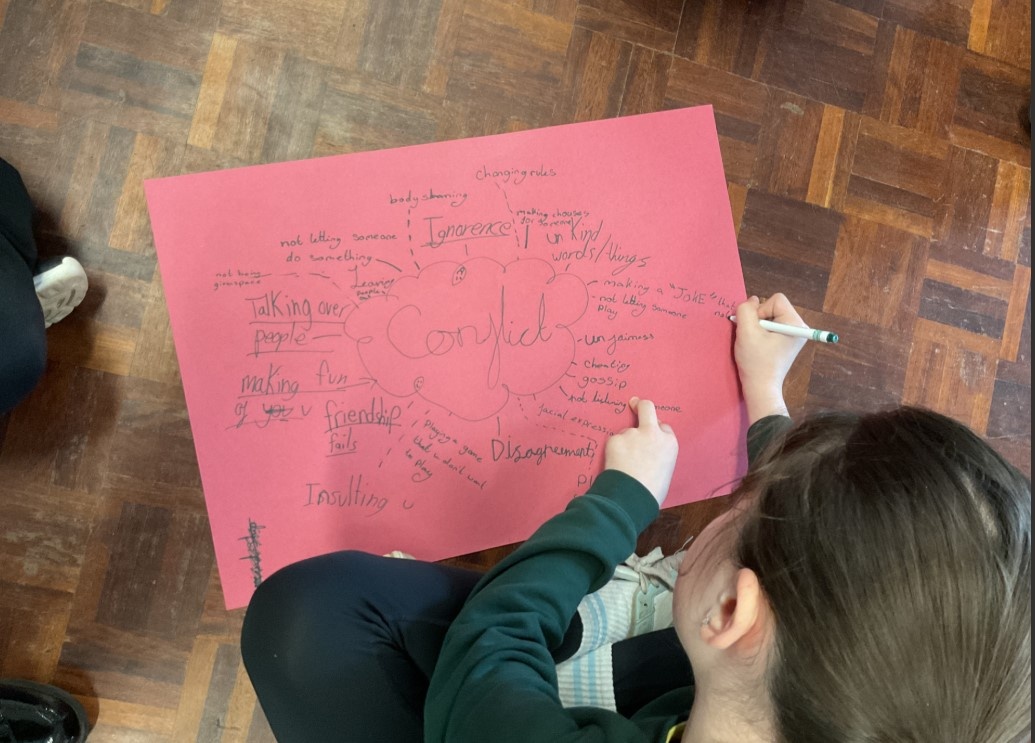 changing rules
body shaming
Ignorence
making chouses
for someone
un kind
words/things
not letting someone
do something
not being
givinspace
Leaving
people
out
Talking over
people
making a "JOKE"
not letting someone
play
Conflict
unfairness
cheating
gossip
not listning
making fun
of you u
friendship
fails
facial expressi
playing a game
that u don't want
to play
Disagreements
Insulting u